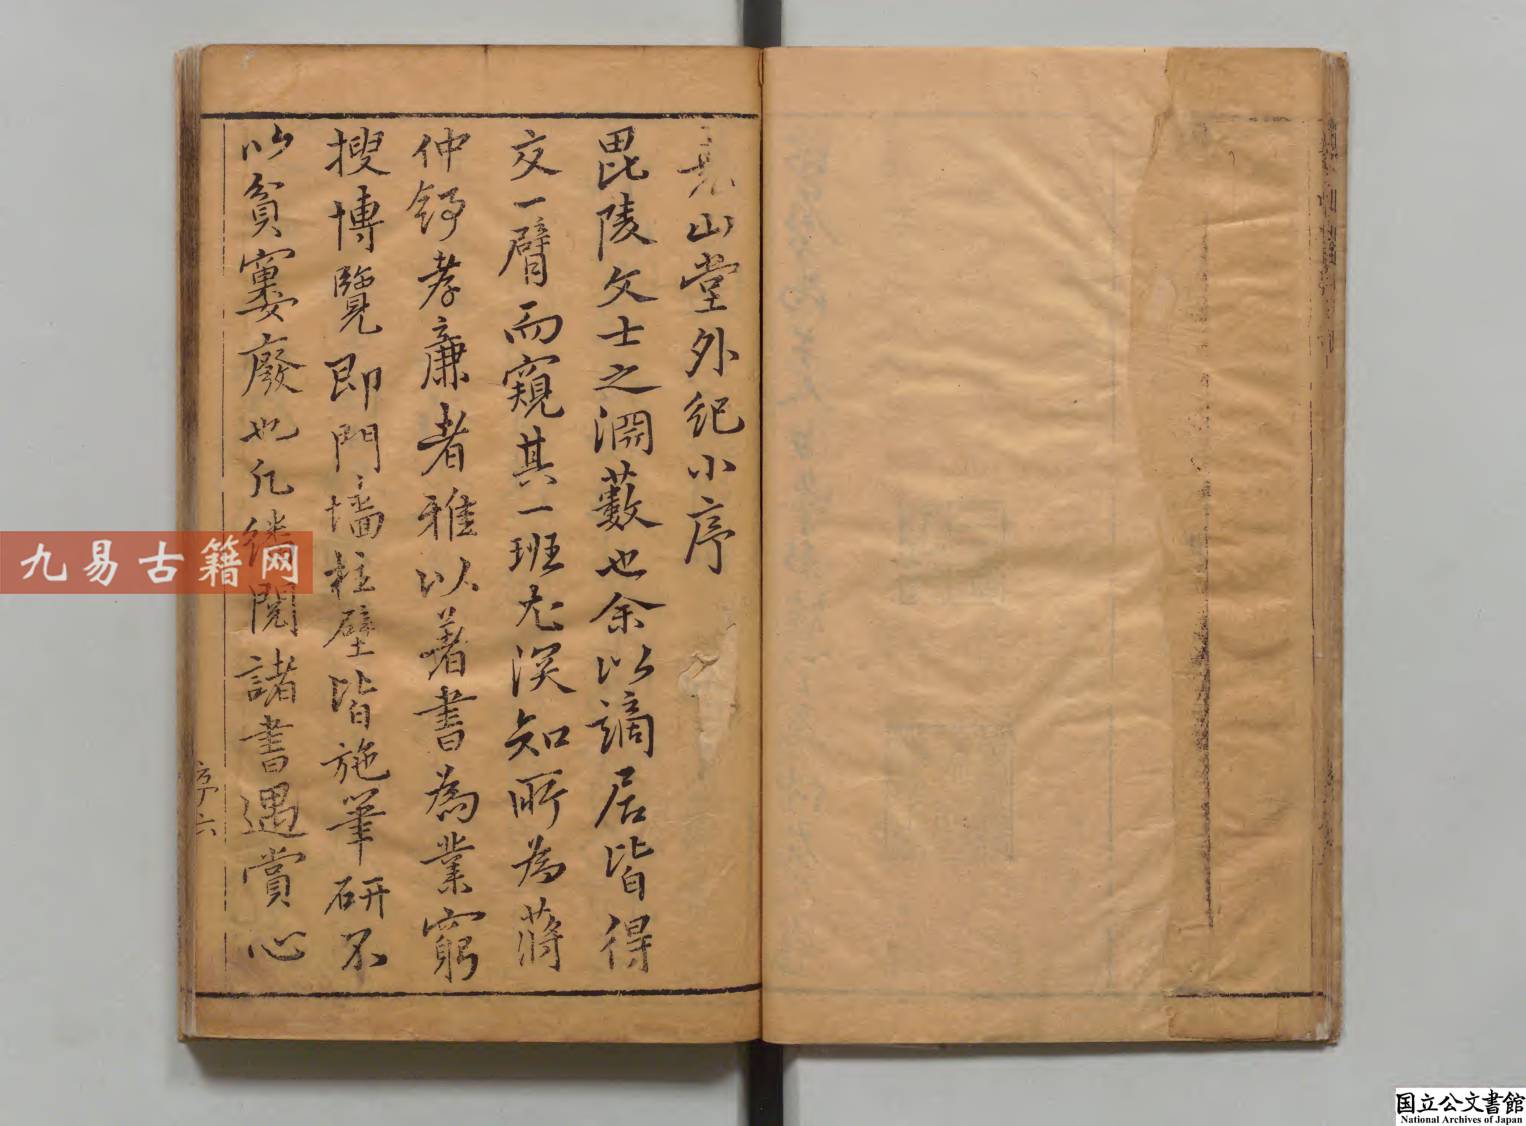 堯山堂外紀小序
毘陵文士之淵藪也余以謫居皆得
交一臂而窺其一班尤深知所為蔣
仲舒孝廉者雅以著書為業窮
搜博覽即門墻柱壁皆施筆研不
以貧窶廢也凡繙閱諸書遇賞心
序六
九易古籍网
国立公文書館
National Archives of Japan